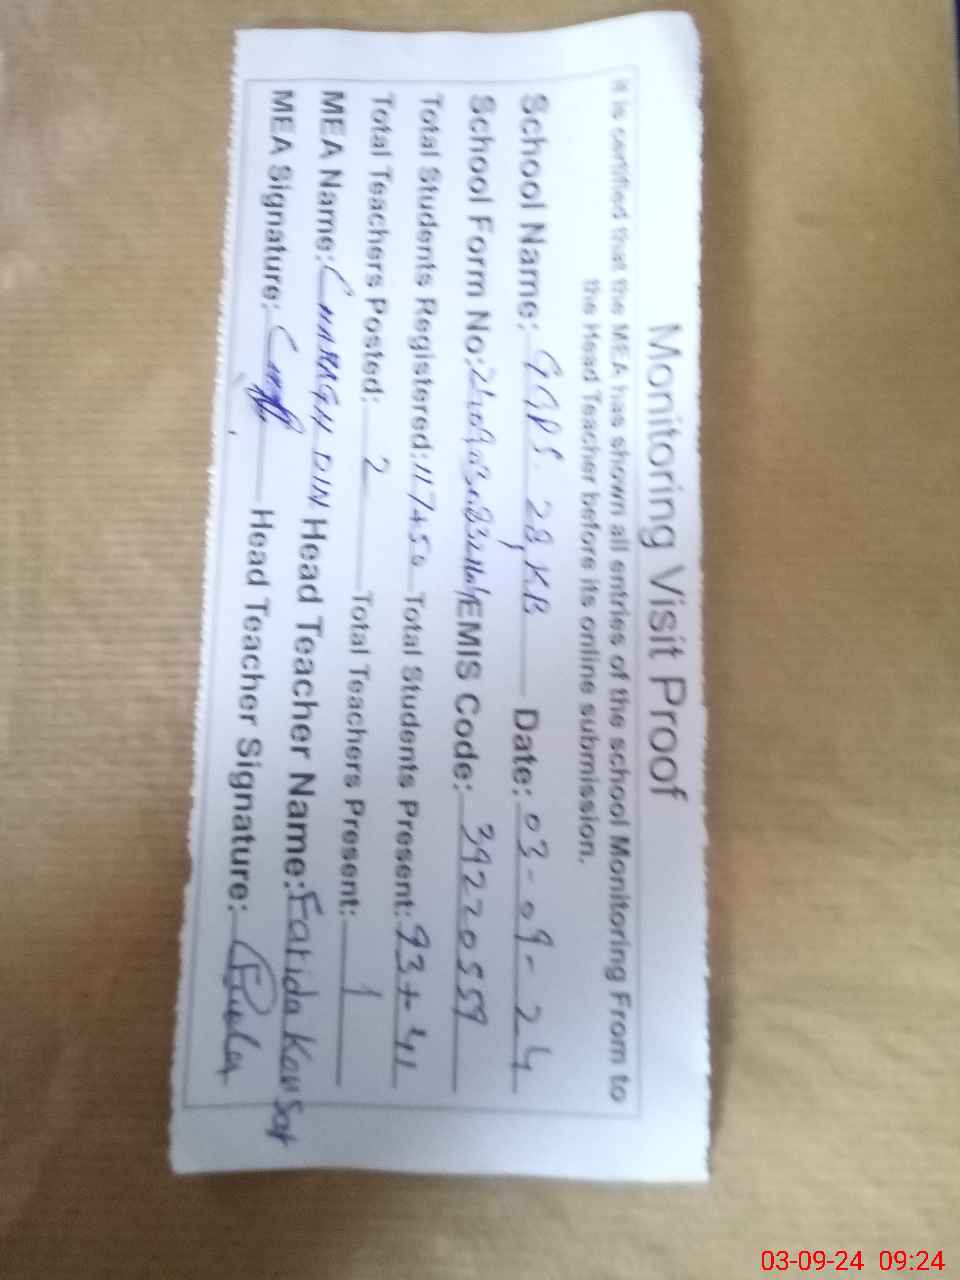 Monitoring Visit Proof
It is certified that the MEA has shown all entries of the school Monitoring From to
the Head Teacher before its online submission.
School Name: GGPS. 28, KB Date: 03-09-24
School Form No: EMIS Code: 39220559
Total Students Registered: 117+50 Total Students Present: 93+41
Total Teachers Posted: 2 Total Teachers Present: 1
MEA Name: CHARAGH DIN Head Teacher Name: Farida Kausar
MEA Signature: Head Teacher Signature:
03-09-24 09:24